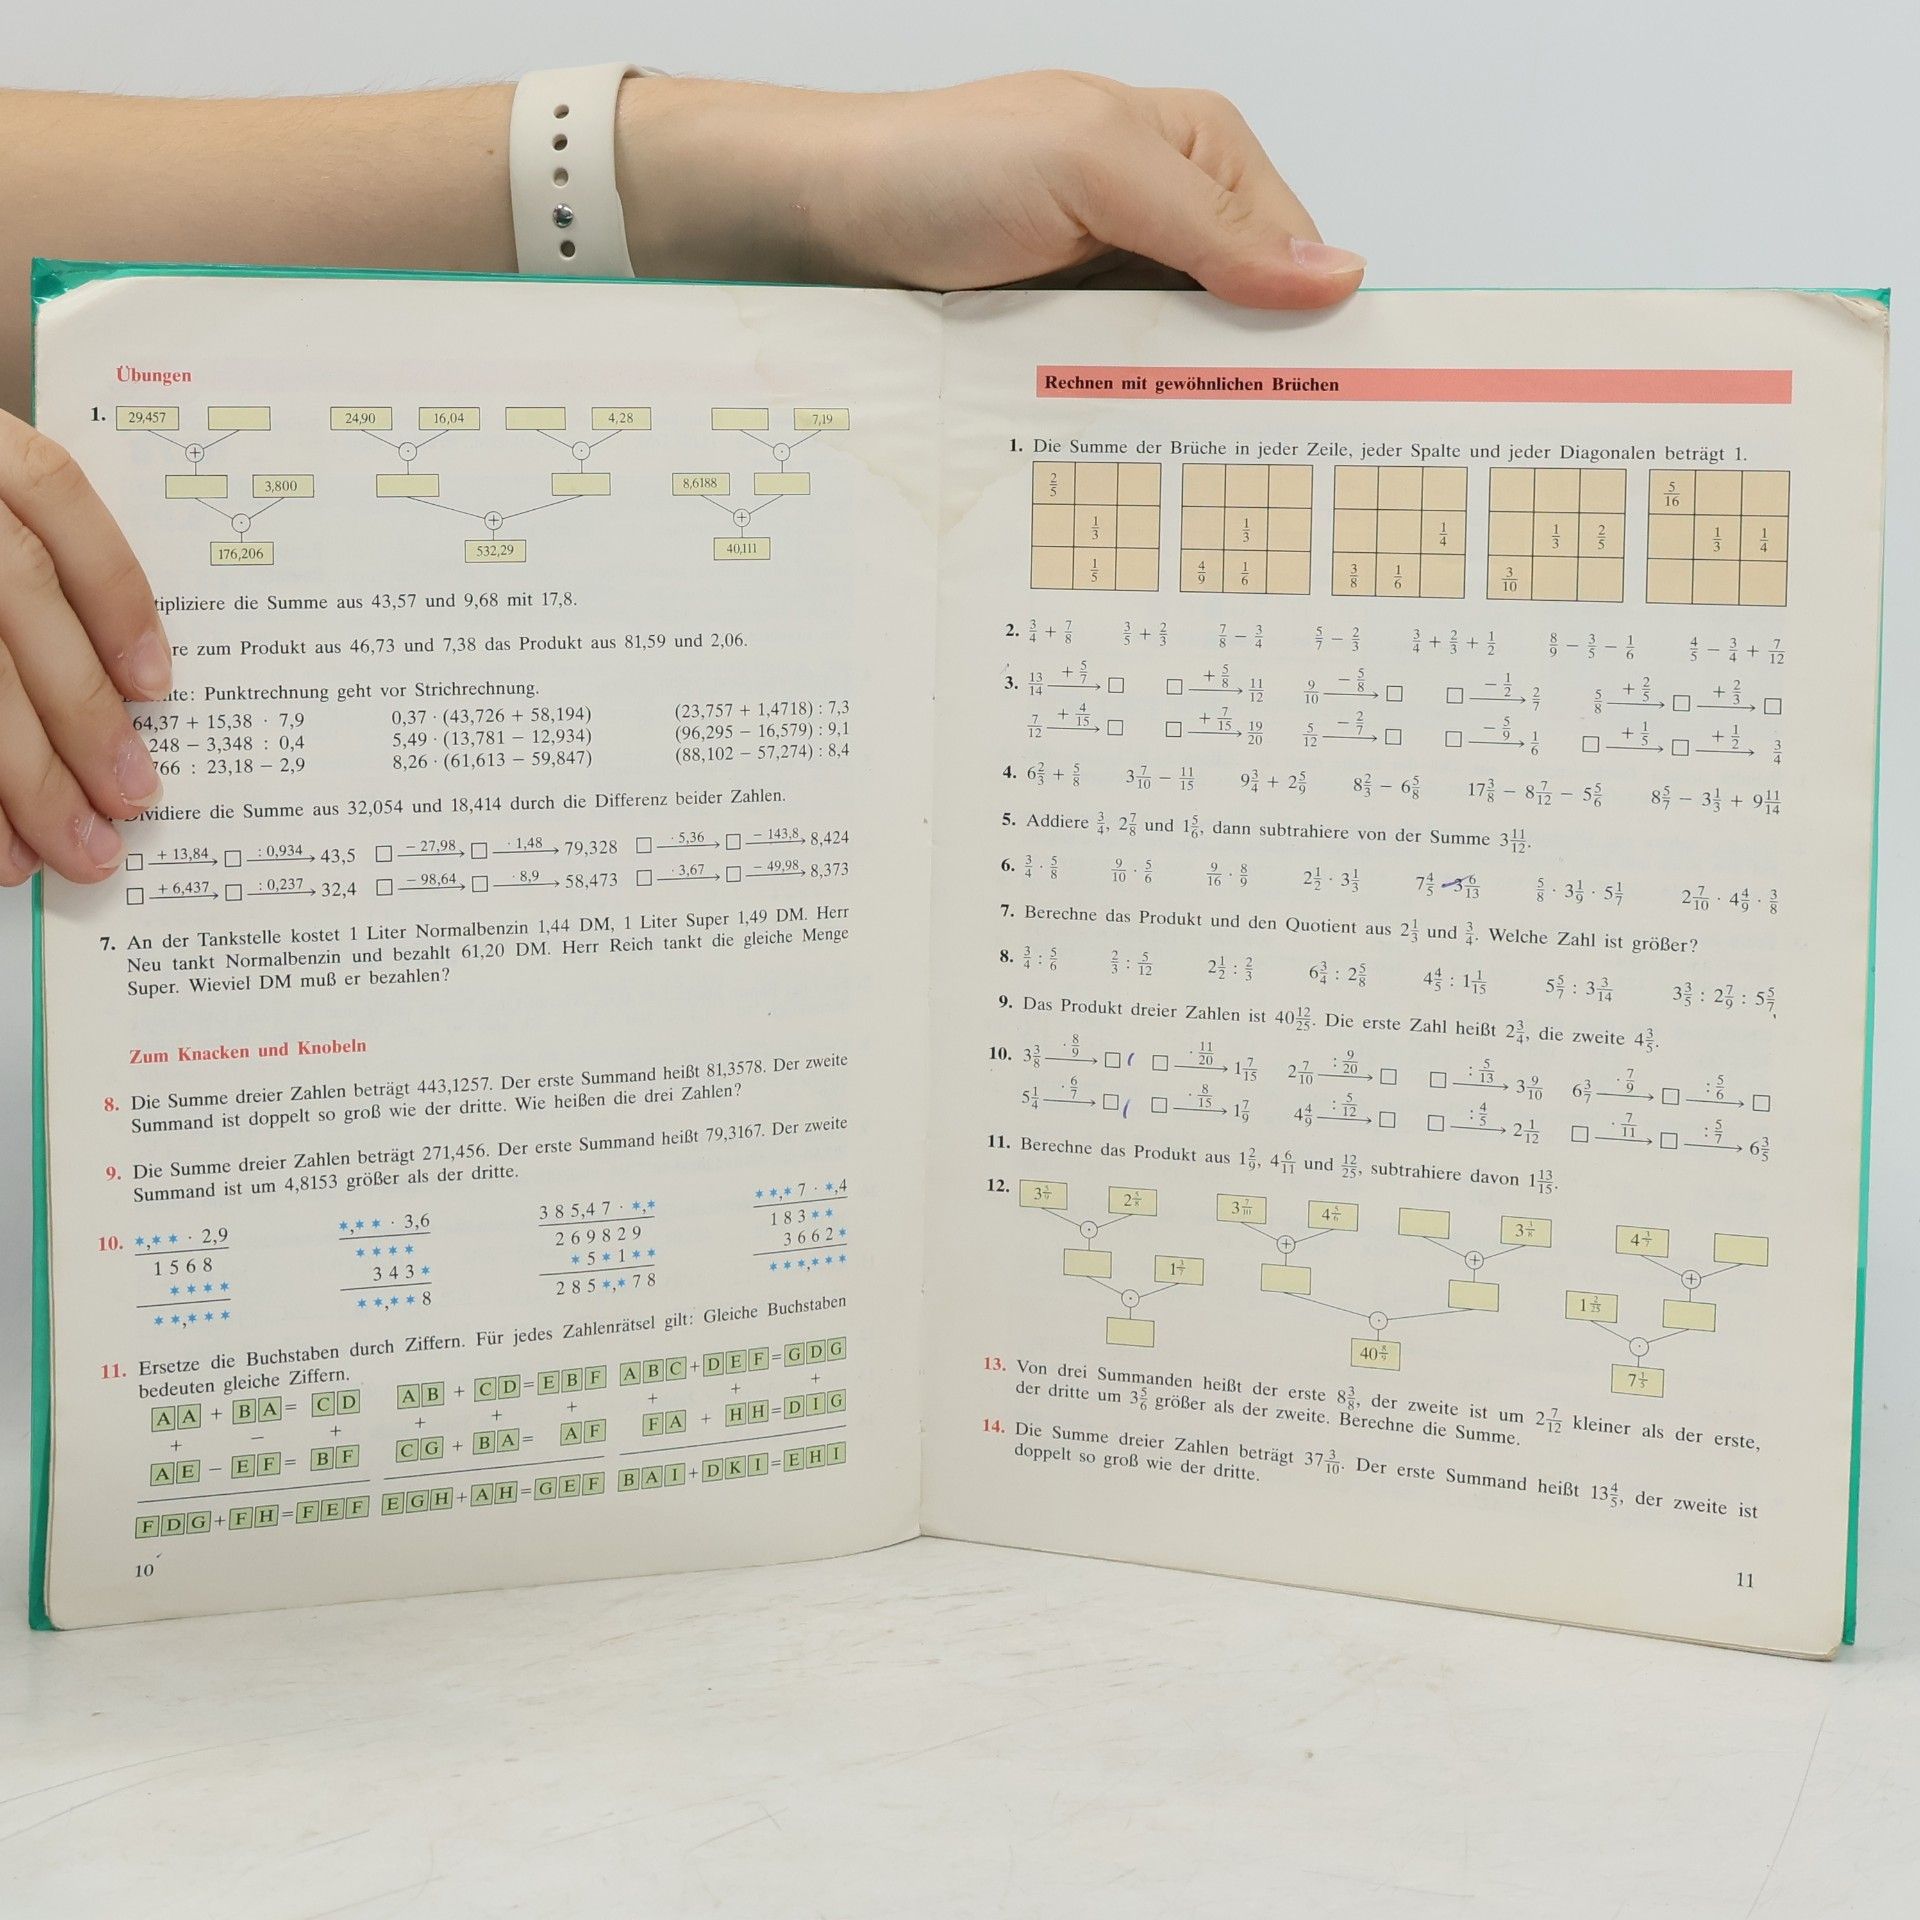 Übungen
1. 29,457 24,90 16,04 4,28 7,19
+ · · ·
3,800 8,6188
· + +
176,206 532,29 40,111
tipliziere die Summe aus 43,57 und 9,68 mit 17,8.
re zum Produkt aus 46,73 und 7,38 das Produkt aus 81,59 und 2,06.
te: Punktrechnung geht vor Strichrechnung.
64,37 + 15,38 · 7,9 0,37 · (43,726 + 58,194) (23,757 + 1,4718) : 7,3
248 − 3,348 : 0,4 5,49 · (13,781 − 12,934) (96,295 − 16,579) : 9,1
766 : 23,18 − 2,9 8,26 · (61,613 − 59,847) (88,102 − 57,274) : 8,4
ividiere die Summe aus 32,054 und 18,414 durch die Differenz beider Zahlen.
□ + 13,84 → □ : 0,934 → 43,5 □ − 27,98 → □ · 1,48 → 79,328 □ · 5,36 → □ − 143,8 → 8,424
□ + 6,437 → □ : 0,237 → 32,4 □ − 98,64 → □ · 8,9 → 58,473 □ · 3,67 → □ − 49,98 → 8,373
7. An der Tankstelle kostet 1 Liter Normalbenzin 1,44 DM, 1 Liter Super 1,49 DM. Herr
Neu tankt Normalbenzin und bezahlt 61,20 DM. Herr Reich tankt die gleiche Menge
Super. Wieviel DM muß er bezahlen?
Zum Knacken und Knobeln
8. Die Summe dreier Zahlen beträgt 443,1257. Der erste Summand heißt 81,3578. Der zweite
Summand ist doppelt so groß wie der dritte. Wie heißen die drei Zahlen?
9. Die Summe dreier Zahlen beträgt 271,456. Der erste Summand heißt 79,3167. Der zweite
Summand ist um 4,8153 größer als der dritte.
10. *,** · 2,9 *,** · 3,6 385,47 · *,* **,*7 · *,4
1568 **** 269829 183**
**** 343* *5*1** 3662*
**,*** **,**8 285*,*78 ***,***
11. Ersetze die Buchstaben durch Ziffern. Für jedes Zahlenrätsel gilt: Gleiche Buchstaben
bedeuten gleiche Ziffern.
AA + BA = CD AB + CD = EBF ABC + DEF = GDG
+ − + + + + + + +
AE − EF = BF CG + BA = AF FA + HH = DIG
FDG + FH = FEF EGH + AH = GEF BAI + DKI = EHI
10
Rechnen mit gewöhnlichen Brüchen
1. Die Summe der Brüche in jeder Zeile, jeder Spalte und jeder Diagonalen beträgt 1.
2/5 5/16
1/3 1/3 1/4 1/3 2/5 1/3 1/4
1/5 4/9 1/6 3/8 1/6 3/10
2. 3/4 + 7/8 3/5 + 2/3 7/8 − 3/4 5/7 − 2/3 3/4 + 2/3 + 1/2 8/9 − 3/5 − 1/6 4/5 − 3/4 + 7/12
3. 13/14 + 5/7 → □ □ + 5/8 → 11/12 9/10 − 5/8 → □ □ − 1/2 → 2/7 5/8 + 2/5 → □ + 2/3 → □
7/12 + 4/15 → □ □ + 7/15 → 19/20 5/12 − 2/7 → □ □ − 5/9 → 1/6 □ + 1/5 → □ + 1/2 → 3/4
4. 6 2/3 + 5/8 3 7/10 − 11/15 9 3/4 + 2 5/9 8 2/3 − 6 5/8 17 3/8 − 8 7/12 − 5 5/6 8 5/7 − 3 1/3 + 9 11/14
5. Addiere 3/4, 2 7/8 und 1 5/6, dann subtrahiere von der Summe 3 11/12.
6. 3/4 · 5/8 9/10 · 5/6 9/16 · 8/9 2 1/2 · 3 1/3 7 4/5 · 3 6/13 5/8 · 3 1/9 · 5 1/7 2 7/10 · 4 4/9 · 3/8
7. Berechne das Produkt und den Quotient aus 2 1/3 und 3/4. Welche Zahl ist größer?
8. 3/4 : 5/6 2/3 : 5/12 2 1/2 : 2/3 6 3/4 : 2 5/8 4 4/5 : 1 1/15 5 5/7 : 3 3/14 3 3/5 : 2 7/9 : 5 5/7
9. Das Produkt dreier Zahlen ist 40 12/25. Die erste Zahl heißt 2 3/4, die zweite 4 3/5.
10. 3 3/8 · 8/9 → □ □ · 11/20 → 1 7/15 2 7/10 : 9/20 → □ □ : 5/13 → 3 9/10 6 3/7 · 7/9 → □ : 5/6 → □
5 1/4 · 6/7 → □ □ · 8/15 → 1 7/9 4 4/9 : 5/12 → □ □ : 4/5 → 2 1/12 □ · 7/11 → □ : 5/7 → 6 3/5
11. Berechne das Produkt aus 1 2/9, 4 6/11 und 12/25, subtrahiere davon 1 13/15.
12. 3 5/9 2 5/8 3 7/10 4 5/6 3 1/8 4 3/7
· + + +
1 2/25
· · ·
40 8/9 7 1/5
13. Von drei Summanden heißt der erste 8 3/8, der zweite ist um 2 7/12 kleiner als der erste,
der dritte um 3 5/6 größer als der zweite. Berechne die Summe.
14. Die Summe dreier Zahlen beträgt 37 3/10. Der erste Summand heißt 13 4/5, der zweite ist
doppelt so groß wie der dritte.
11